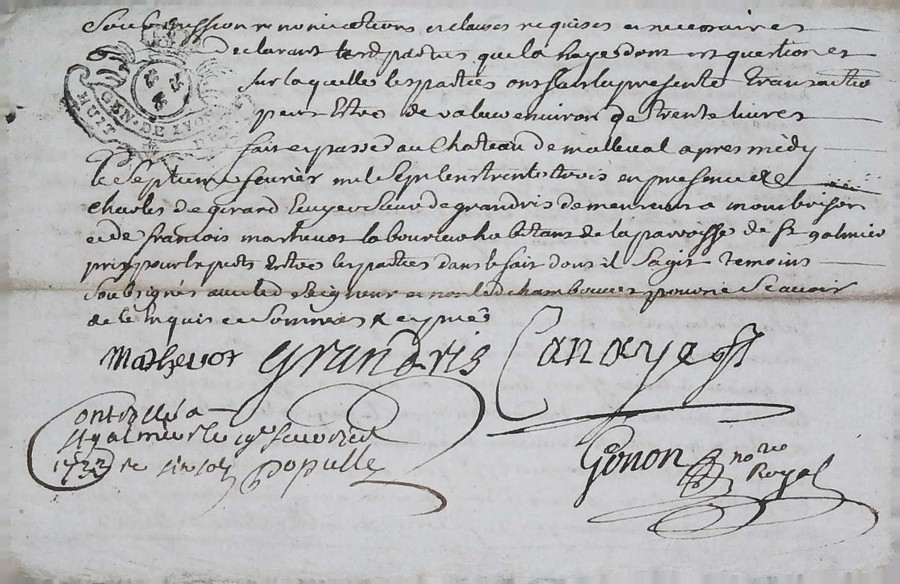 Soubmission renonciations et clauses requises et necessaires
Declarant lesd parties que la haye dont est question et
sur laquelle les parties ont fait la presente transactio
peut Estre de valeur environ de trente livres
fait et passé au Chateau de malleval apres midy
le Septieme fevrier mil Sept Cens trente trois en presence de
Charles de girard Ecuyer Sieur de grandris demeurant a montbrison
et de francois mathevot laboureur habitant de la paroisse de St galmier
pris pour Estre les parties dans le fait dont il Sagit temoins
Soubsignés avec led Seigneur et non led chambouvet pour ne Scavoir
de ce Enquis et Sommés
HUIT
GEN. DE LYON
Mathevot grandris Canaye
Controllé a
St galmier le fevrier
1733 re six sols populle
Gonon no re
Royal